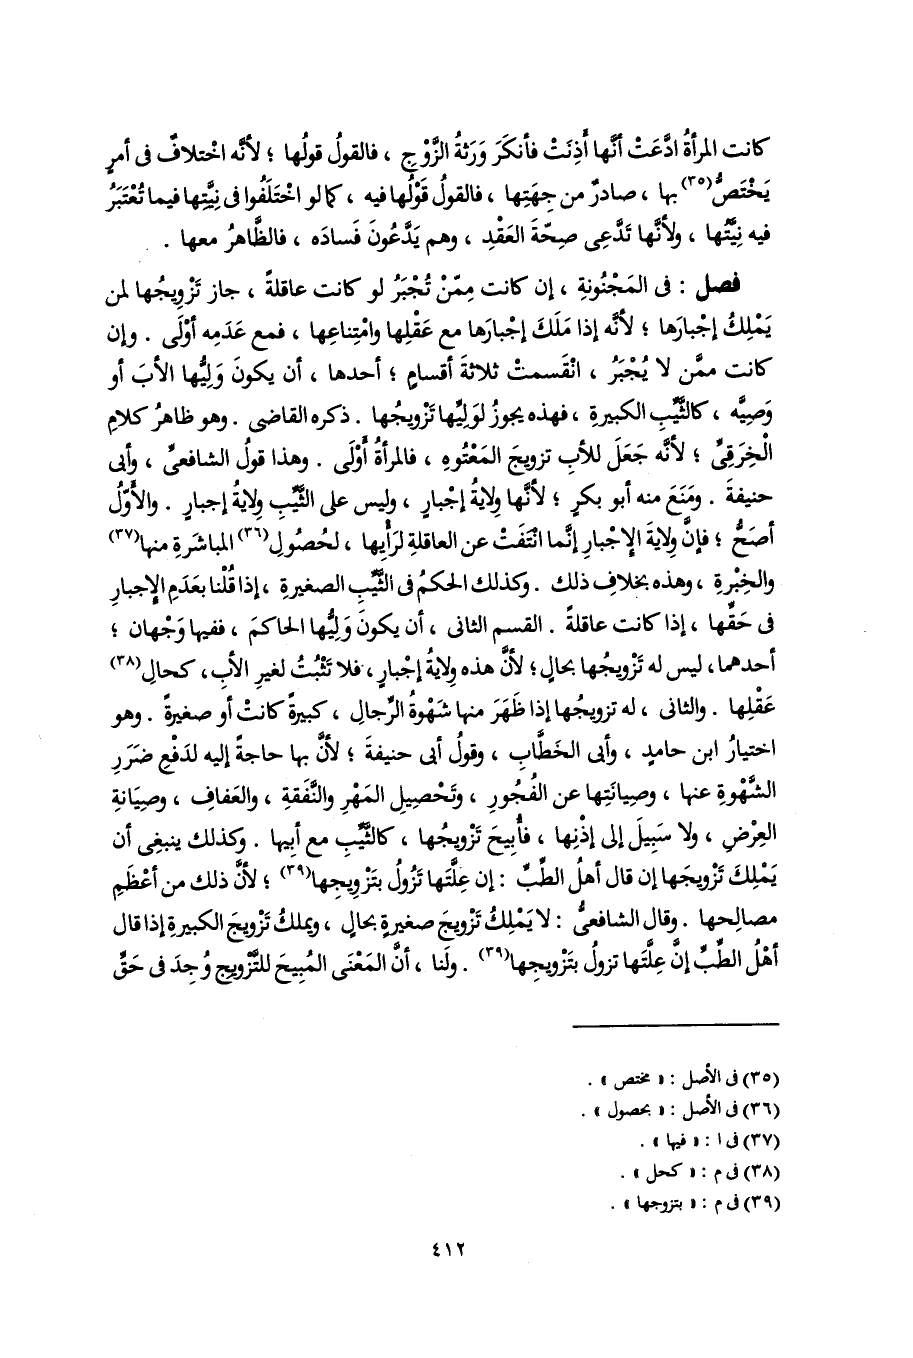 كانت المرأةُ ادَّعَتْ أنَّها أَذِنَتْ فأنكَرَ وَرَثةُ الزَّوْجِ ، فالقولُ قولُها ؛ لأنَّه اخْتلافٌ فى أمرٍ
يَخْتَصُّ(٣٥) بها ، صادرٌ من جِهَتِها ، فالقولُ قَوْلُها فيه ، كما لو اخْتَلَفُوا فى نِيَّتِها فيما تُعْتَبَرُ
فيه نِيَّتُها ، ولأنَّها تَدَّعِى صِحّةَ العَقْدِ ، وهم يَدَّعُونَ فَسادَه ، فالظَّاهرُ معها .
فصل : فى المَجْنُونةِ ، إن كانت مِمّنْ تُجْبَرُ لو كانت عاقلةً ، جاز تَزْوِيجُها لمن
يَمْلِكُ إجْبارَها ؛ لأنَّه إذا مَلَكَ إجْبارَها مع عَقْلِها وامْتِناعِها ، فمع عَدَمِه أوْلَى . وإن
كانت ممَّن لا يُجْبَرُ ، انْقَسمتْ ثلاثةَ أقسامٍ ؛ أحدها ، أن يكونَ وَلِيُّها الأبَ أو
وَصِيَّه ، كالثَّيِّبِ الكبيرةِ ، فهذه يجوزُ لوَلِيِّها تَزْويجُها . ذكره القاضى . وهو ظاهرُ كلامِ
الْخِرَقِىِّ ؛ لأنَّه جَعَلَ للأبِ تزويجَ المَعْتُوهِ ، فالمرأةُ أَوْلَى . وهذا قولُ الشافعىِّ ، وأبى
حنيفةَ . ومَنَعَ منه أبو بكرٍ ؛ لأنَّها وِلايةُ إجْبارٍ ، وليس على الثَّيِّبِ وِلايةُ إجبارٍ . والأوَّلُ
أصَحُّ ؛ فإنَّ وِلايةَ الإجْبارِ إنَّما انْتَفَتْ عن العاقلةِ لرَأْيِها ، لحُصُولِ(٣٦) المباشَرةِ منها(٣٧)
والخِبْرةِ ، وهذه بخلافِ ذلك . وكذلك الحكمُ فى الثَّيِّبِ الصغيرةِ ، إذا قُلْنا بعَدَمِ الإجبارِ
فى حَقِّها ، إذا كانت عاقلةً . القسم الثانى ، أن يكونَ وَلِيُّها الحاكمَ ، ففيها وَجْهان ؛
أحدهما، ليس له تَزْويجُها بحالٍ؛ لأنَّ هذه وِلايةُ إجبارٍ، فلا تَثْبُتُ لغيرِ الأبِ، كحالِ(٣٨)
عَقْلِها . والثانى ، له تزويجُها إذا ظَهَرَ منها شَهْوةُ الرِّجالِ ، كبيرةً كانتْ أو صغيرةً . وهو
اختيارُ ابن حامدٍ ، وأبى الخَطَّابِ ، وقولُ أبى حنيفةَ ؛ لأنَّ بها حاجةً إليه لدَفْعِ ضَرَرِ
الشَّهْوةِ عنها ، وصِيانَتِها عن الفُجُورِ ، وتَحْصِيلِ المَهْرِ والنَّفَقةِ ، والعَفافِ ، وصِيَانةِ
العِرْضِ ، ولا سَبِيلَ إلى إذْنِها ، فأُبيحَ تَزْويجُها ، كالثَّيِّبِ مع أبيها . وكذلك ينبغِى أن
يَمْلِكَ تَزْويجَها إن قال أهلُ الطِّبِّ : إن عِلَّتَها تَزُولُ بتَزْوِيجِها(٣٩) ؛ لأنَّ ذلك من أعْظَمِ
مصالِحها . وقال الشافعىُّ : لا يَمْلِكُ تَزْويجَ صغيرةٍ بحالٍ ، ويملكُ تَزْويجَ الكبيرةِ إذا قال
أهْلُ الطِّبِّ إنَّ عِلَّتَها تزولُ بتَزْويجِها(٣٩) . ولَنا ، أنَّ المَعْنَى المُبِيحَ للتَّزْويجِ وُجِدَ فى حَقِّ
(٣٥) فى الأصل : « مختص » .
(٣٦) فى الأصل : « بحصول » .
(٣٧) فى ا : « فيها » .
(٣٨) فى م : « كحل » .
(٣٩) فى م : « بتزوجها » .
٤١٢